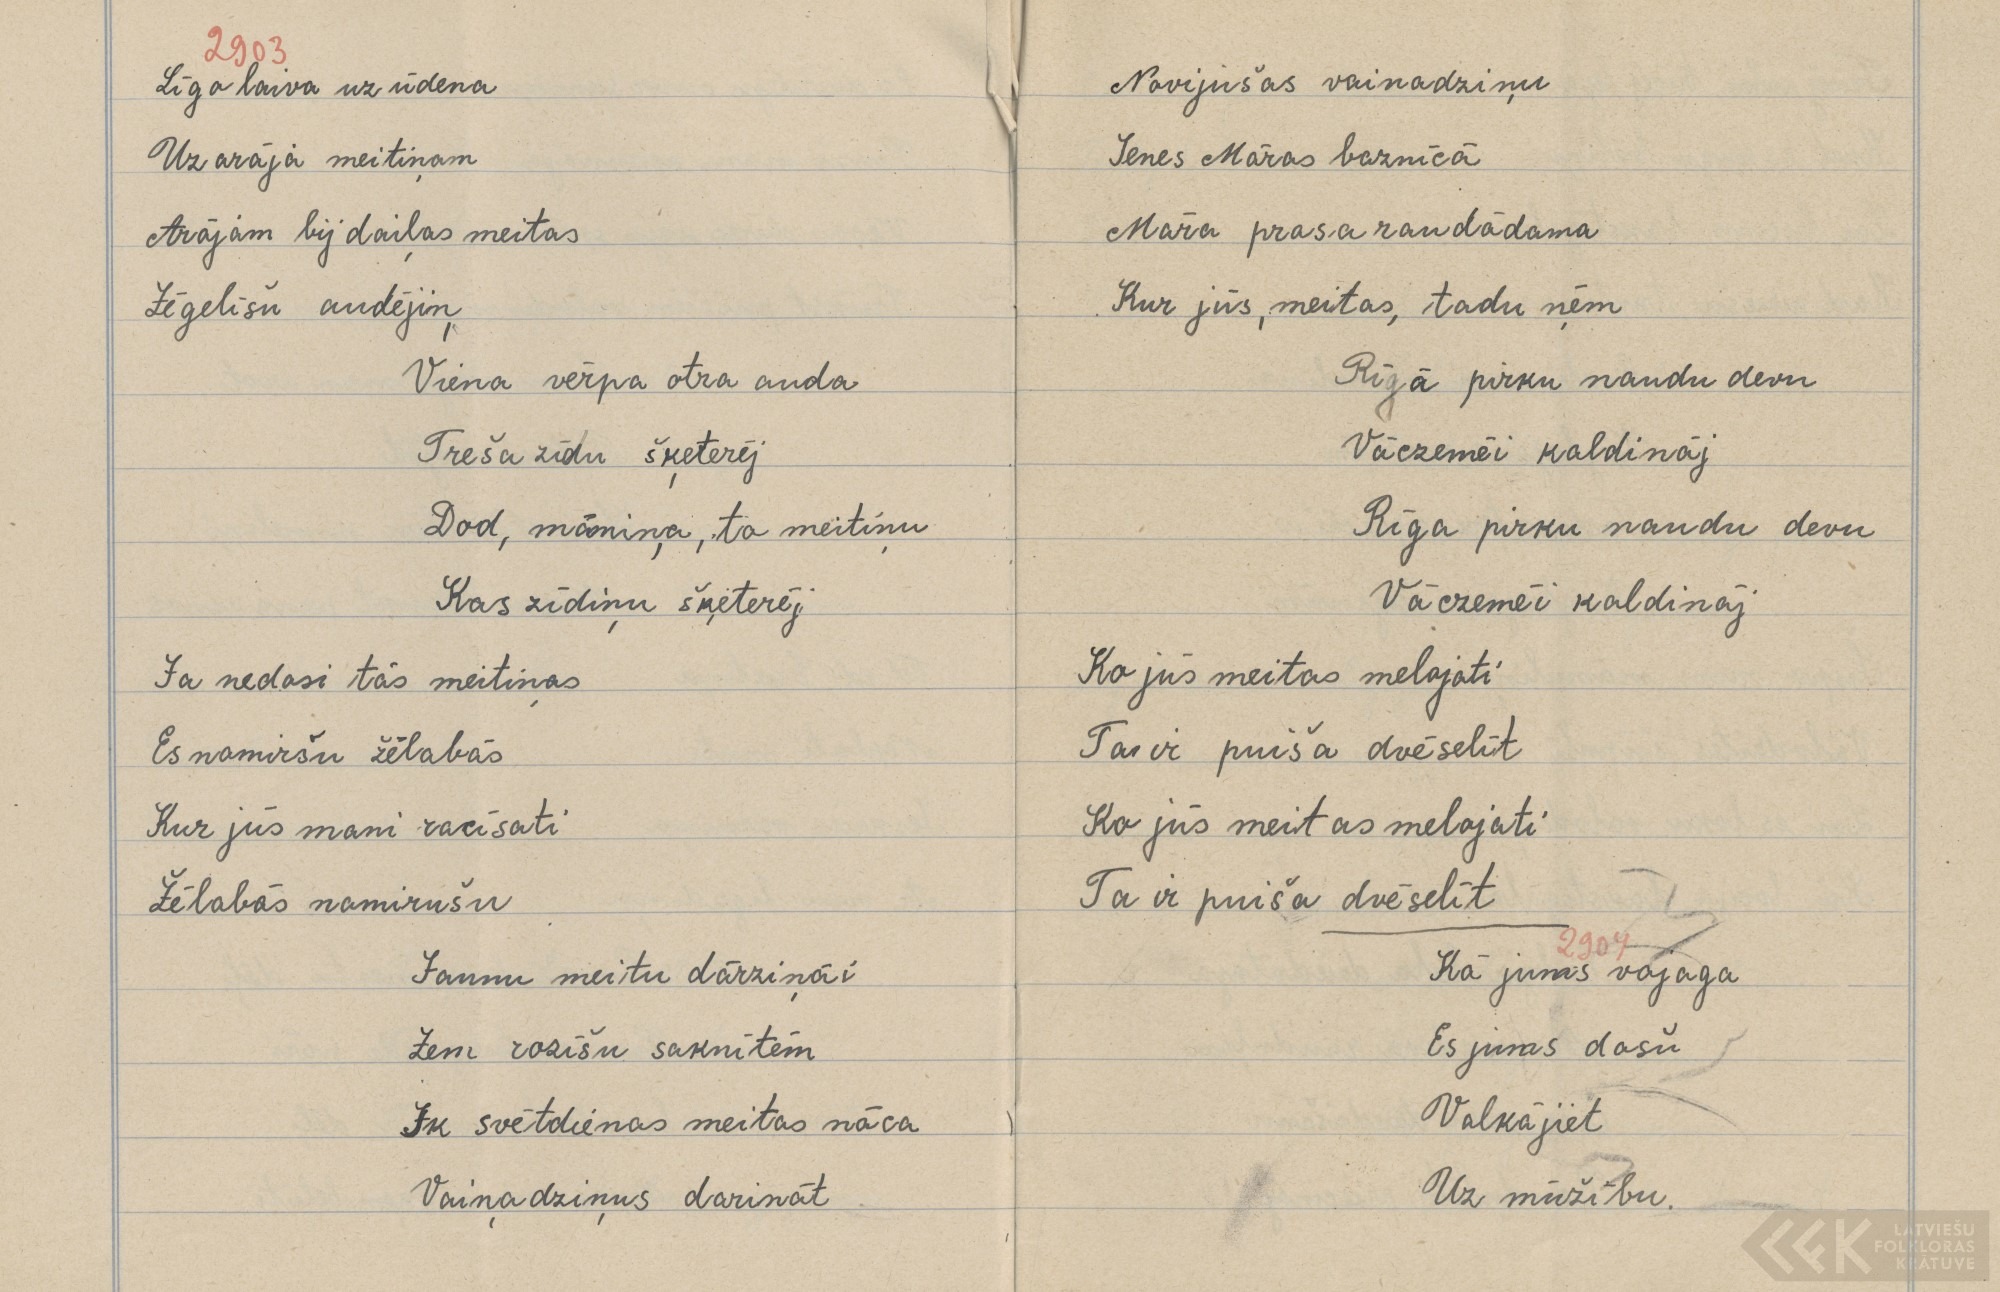 2903
Līgo laiva uz ūdena
Uz arāja meitiņam
Arājam bij daiļas meitas
Zēgelīšu audējiņ
Viena vērpa otra auda
Treša zīdu šķeterēj
Dod, māmiņa, to meitiņu
Kas zīdiņu šķeterēj
Ja nedosi tās meitiņas
Es nomiršu žēlabās
Kur jūs mani racīsati
Žēlabās nomirušu
Jaunu meitu dārziņāi
Zem rozīšu saknītēm
Ik svētdienas meitas nāca
Vaiņadziņus darināt
Novijušas vainadziņu
Ienes Māras baznīcā
Māra prasa raudādama
Kur jūs, meitas, tadu ņēm
Rīgā pirku naudu devu
Vāczemēi kaldināj
Rīga pirku naudu devu
Vāczemēi kaldināj
Ko jūs meitas melojati
Tas ir puiša dvēselīt
Ko jūs meitas melojati
Ta ir puiša dvēselīt
2904
Kā jums vajaga
Es jums došu
Valkājiet
Uz mūžību.
LATVIEŠU
FOLKLORAS
KRĀTUVE